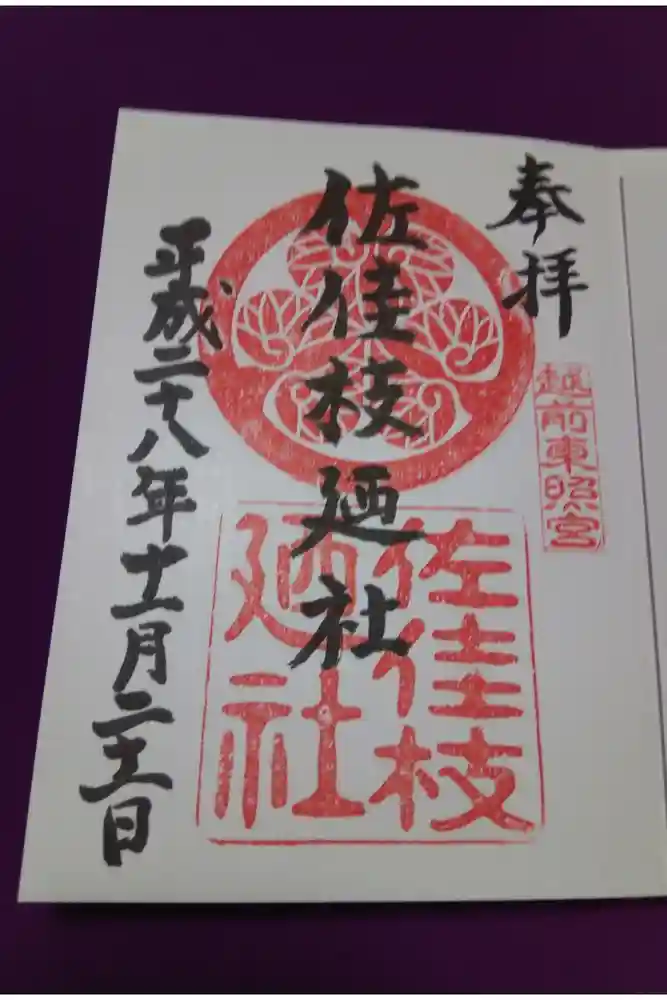 奉拝
越前東照宮
佐佳枝廼社
佐佳枝
廼社
平成二十八年十二月二十二日